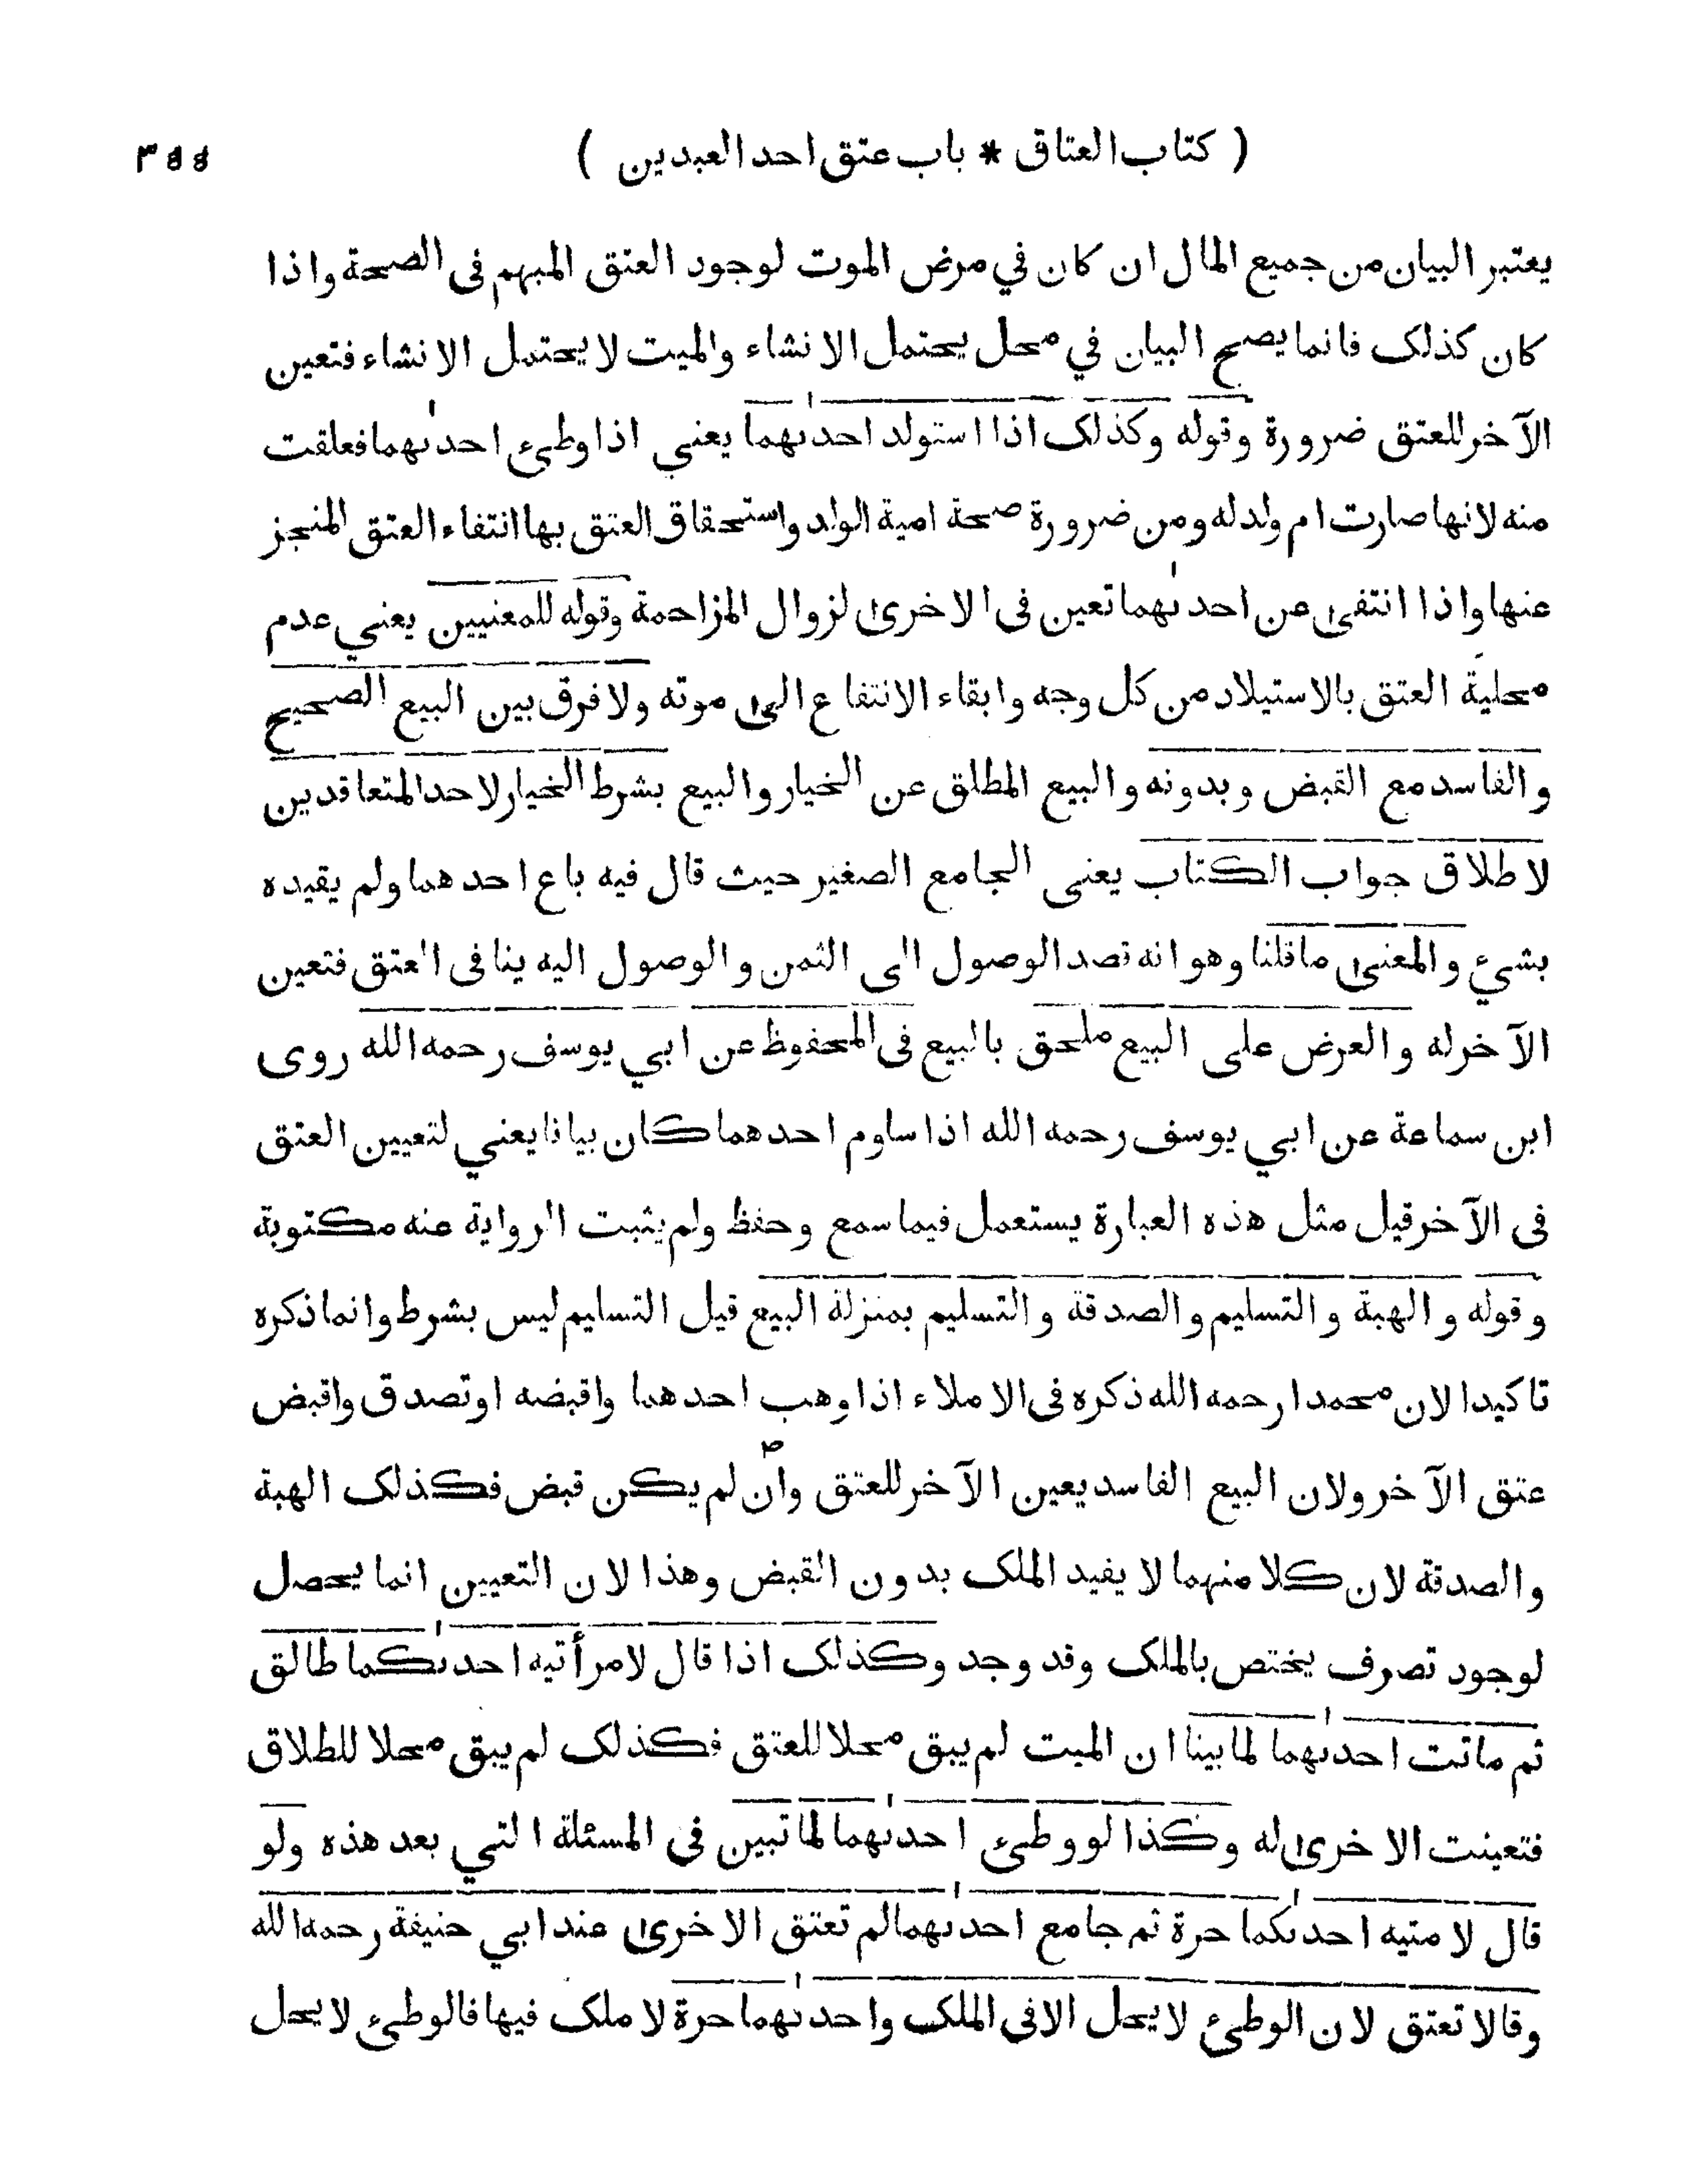 ( كتاب العتاق * باب عتق احد العبدين )
يعتبر البيان من جميع المال ان كان في مرض الموت لوجود العتق المبهم فى الصحة واذا
كان كذلك فانما يصح البيان في محل يحتمل الانشاء والميت لا يحتمل الانشاء فتعين
الآخر للعتق ضرورة وقوله وكذلك اذا استولد احدٰىهما يعني اذا وطىء احدٰىهما فعلقت
منه لانها صارت ام ولد له ومن ضرورة صحة امية الولد واستحقاق العتق بها انتفاء العتق المنجز
عنها واذا انتفىٰ عن احدٰىهما تعين فى الاخرىٰ لزوال المزاحمة وقوله للمعنيين يعني عدم
محلية العتق بالاستيلاد من كل وجه وابقاء الانتفاع الىٰ موته ولا فرق بين البيع الصحيح
والفاسد مع القبض وبدونه والبيع المطلق عن الخيار والبيع بشرط الخيار لاحد المتعاقدين
لاطلاق جواب الكتاب يعنى الجامع الصغير حيث قال فيه باع احدهما ولم يقيده
بشيء والمعنىٰ ما قلنا وهو انه قصد الوصول الى الثمن والوصول اليه ينافى العتق فتعين
الآخر له والعرض على البيع ملحق بالبيع فى المحفوظ عن ابي يوسف رحمه الله روى
ابن سماعة عن ابي يوسف رحمه الله اذا ساوم احدهما كان بيانا يعني لتعيين العتق
فى الآخر قيل مثل هذه العبارة يستعمل فيما سمع وحفظ ولم يثبت الرواية عنه مكتوبة
وقوله والهبة والتسليم والصدقة والتسليم بمنزلة البيع قيل التسليم ليس بشرط وانما ذكره
تاكيدا لان محمدا رحمه الله ذكره فى الاملاء اذا وهب احدهما واقبضه او تصدق واقبض
عتق الآخر ولان البيع الفاسد يعين الآخر للعتق وان لم يكن قبض فكذلك الهبة
والصدقة لان كلا منهما لا يفيد الملك بدون القبض وهذا لان التعيين انما يحصل
لوجود تصرف يختص بالملك وقد وجد وكذلك اذا قال لامرأتيه احدٰىكما طالق
ثم ماتت احدٰىهما لما بينا ان الميت لم يبق محلا للعتق فكذلك لم يبق محلا للطلاق
فتعينت الاخرىٰ له وكذا لو وطىء احدٰىهما لما تبين فى المسئلة التي بعد هذه ولو
قال لامتيه احدٰىكما حرة ثم جامع احدٰىهما لم تعتق الاخرىٰ عند ابي حنيفة رحمه الله
وقالا تعتق لان الوطىء لا يحل الا فى الملك واحدٰىهما حرة لا ملك فيها فالوطىء لا يحل